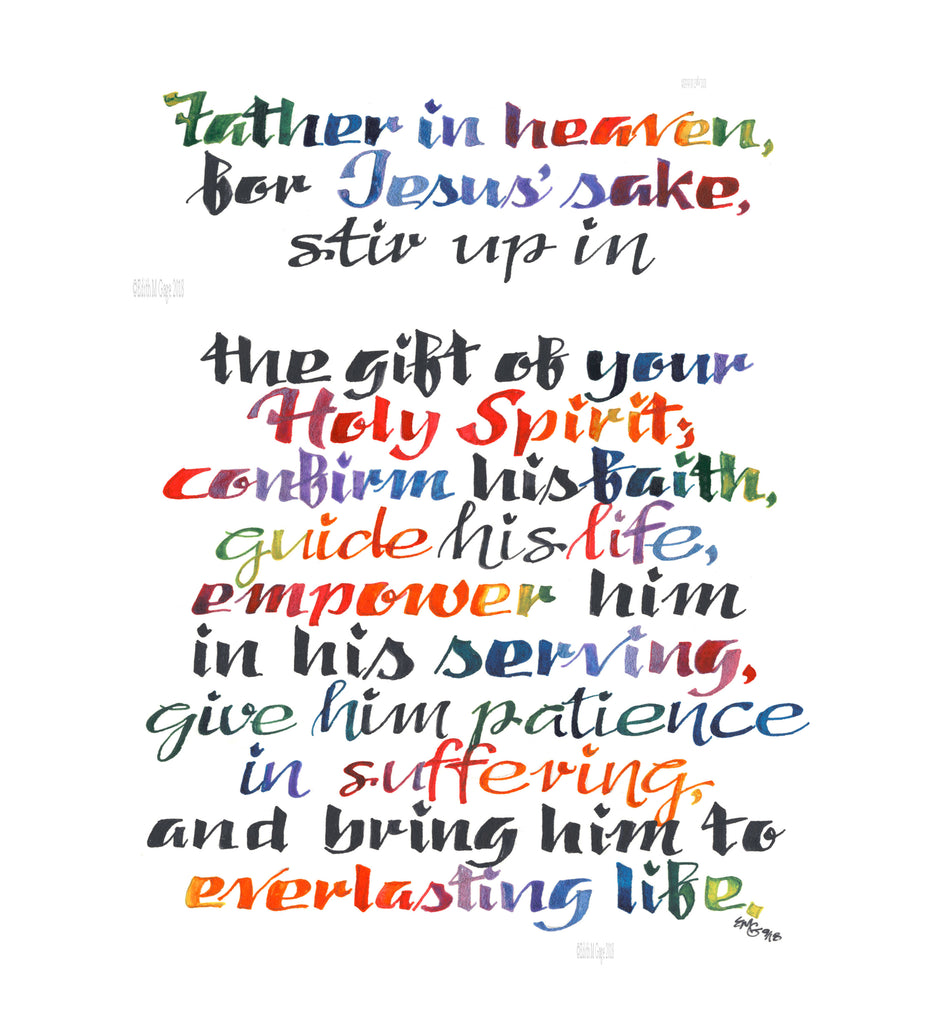 Father in heaven,
for Jesus' sake,
stir up in
©Edith M Gage 2018
the gift of your
Holy Spirit;
confirm his faith,
guide his life,
empower him
in his serving,
give him patience
in suffering,
and bring him to
everlasting life.
EMG 9/18
©Edith M Gage 2018